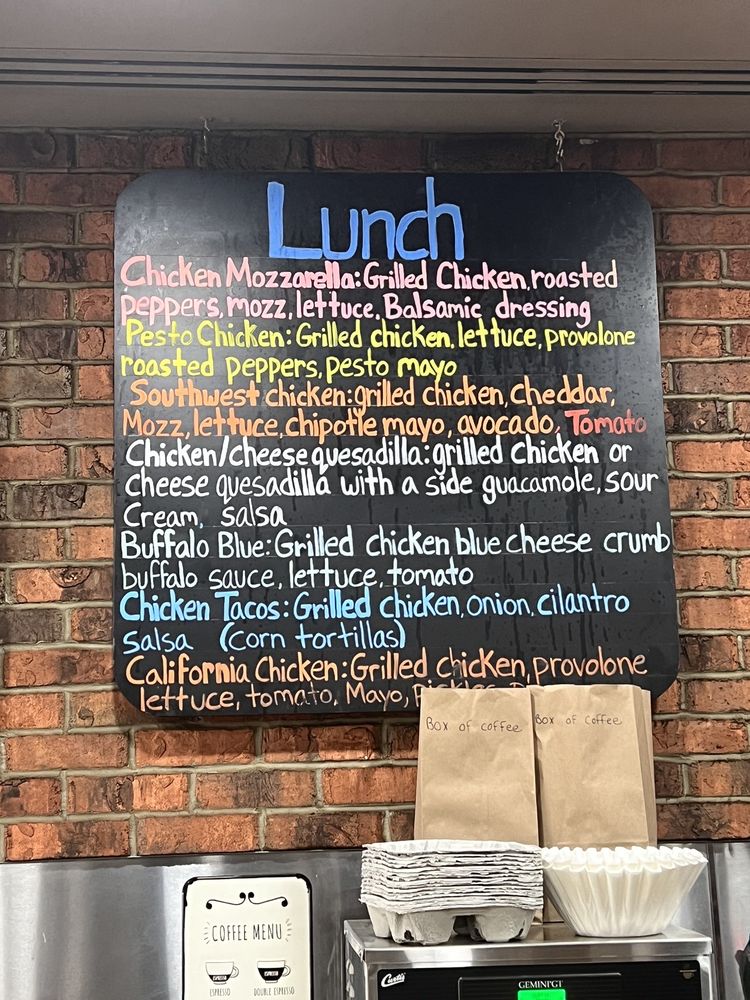 Lunch
Chicken Mozzarella: Grilled Chicken, roasted
peppers, mozz, lettuce, Balsamic dressing
Pesto Chicken: Grilled chicken, lettuce, provolone
roasted peppers, pesto mayo
Southwest chicken: grilled chicken, cheddar,
Mozz, lettuce, chipotle mayo, avocado, Tomato
Chicken/cheese quesadilla: grilled chicken or
cheese quesadilla with a side guacamole, sour
Cream, salsa
Buffalo Blue: Grilled chicken blue cheese crumb
buffalo sauce, lettuce, tomato
Chicken Tacos: Grilled chicken, onion, cilantro
salsa (corn tortillas)
California Chicken: Grilled chicken, provolone
lettuce, tomato, Mayo, pickles
Box of coffee
Box of coffee
COFFEE MENU
ESPRESSO
ESPRESSO
ESPRESSO
DOUBLE ESPRESSO
Curtis
GEMINI GT